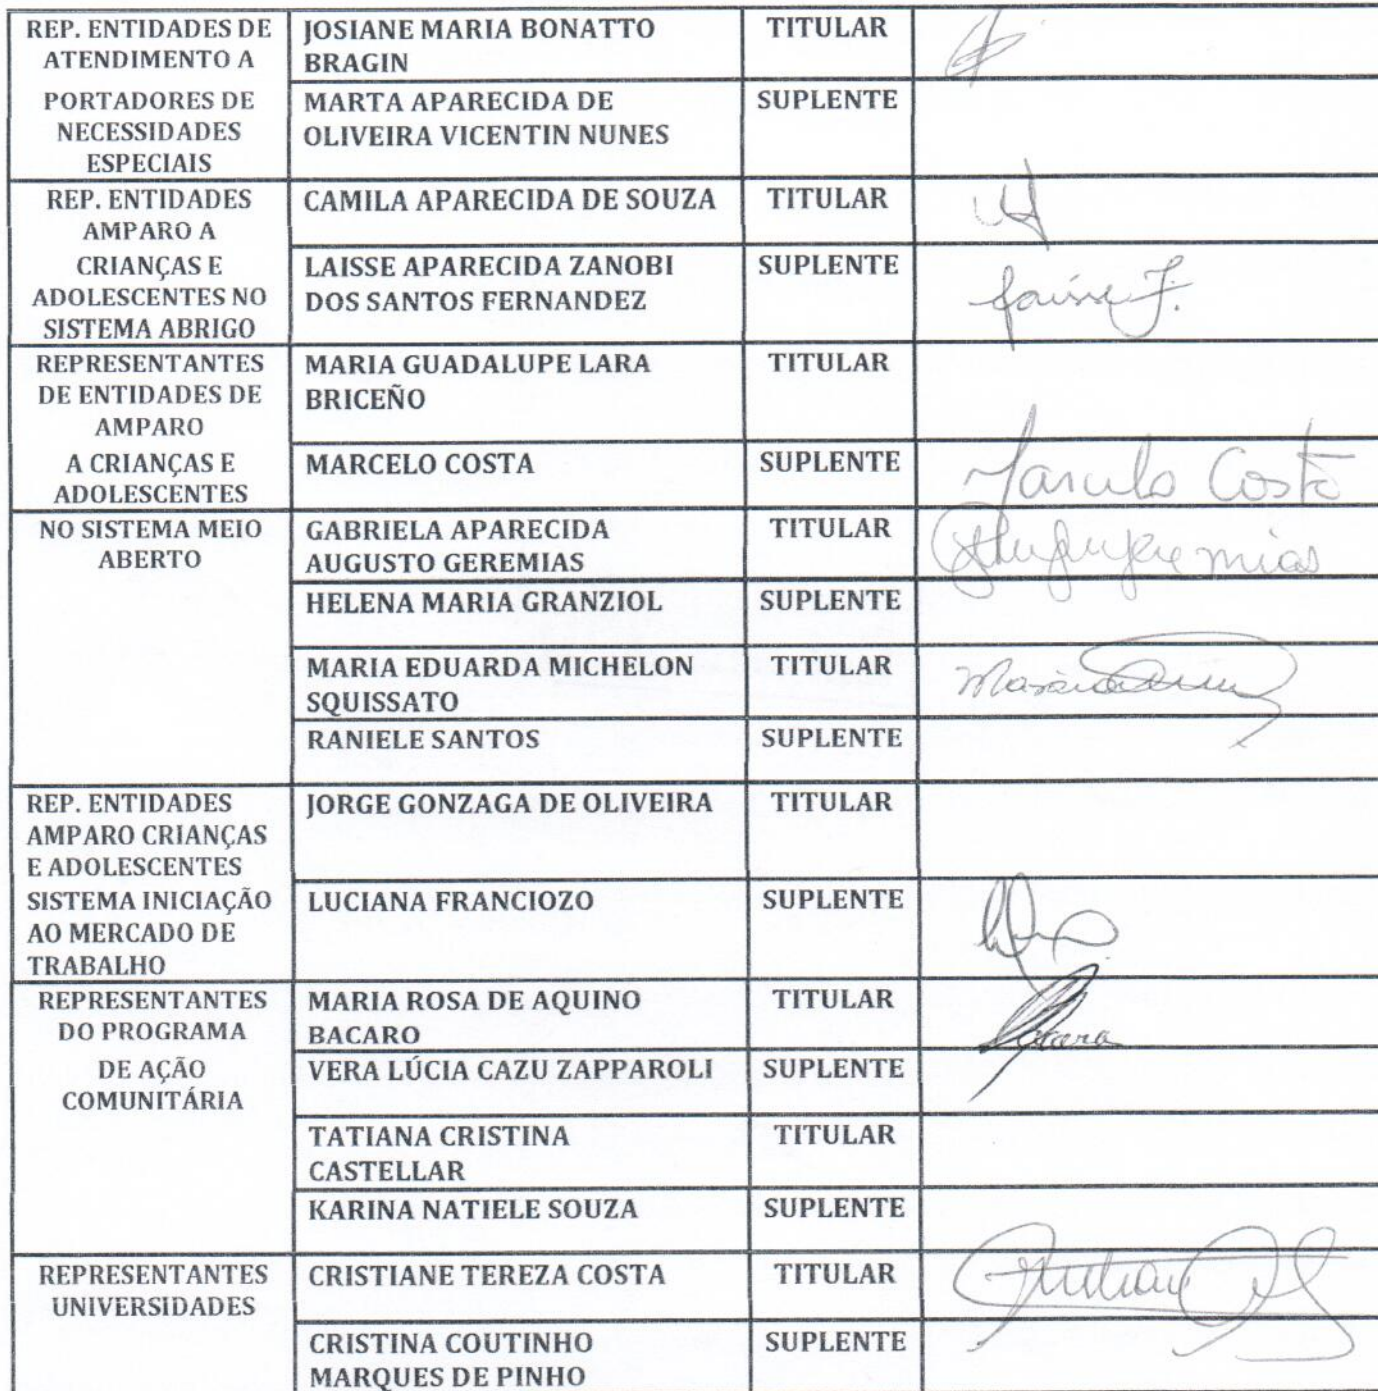 REP. ENTIDADES DE
ATENDIMENTO A
PORTADORES DE
NECESSIDADES
ESPECIAIS
JOSIANE MARIA BONATTO
BRAGIN
TITULAR
MARTA APARECIDA DE
OLIVEIRA VICENTIN NUNES
SUPLENTE
REP. ENTIDADES
AMPARO A
CRIANÇAS E
ADOLESCENTES NO
SISTEMA ABRIGO
CAMILA APARECIDA DE SOUZA
TITULAR
LAISSE APARECIDA ZANOBI
DOS SANTOS FERNANDEZ
SUPLENTE
Laisse F.
REPRESENTANTES
DE ENTIDADES DE
AMPARO
A CRIANÇAS E
ADOLESCENTES
NO SISTEMA MEIO
ABERTO
MARIA GUADALUPE LARA
BRICEÑO
TITULAR
MARCELO COSTA
SUPLENTE
Marcelo Costa
GABRIELA APARECIDA
AUGUSTO GEREMIAS
TITULAR
HELENA MARIA GRANZIOL
SUPLENTE
MARIA EDUARDA MICHELON
SQUISSATO
TITULAR
RANIELE SANTOS
SUPLENTE
REP. ENTIDADES
AMPARO CRIANÇAS
E ADOLESCENTES
SISTEMA INICIAÇÃO
AO MERCADO DE
TRABALHO
JORGE GONZAGA DE OLIVEIRA
TITULAR
LUCIANA FRANCIOZO
SUPLENTE
REPRESENTANTES
DO PROGRAMA
DE AÇÃO
COMUNITÁRIA
MARIA ROSA DE AQUINO
BACARO
TITULAR
VERA LÚCIA CAZU ZAPPAROLI
SUPLENTE
TATIANA CRISTINA
CASTELLAR
TITULAR
KARINA NATIELE SOUZA
SUPLENTE
REPRESENTANTES
UNIVERSIDADES
CRISTIANE TEREZA COSTA
TITULAR
CRISTINA COUTINHO
MARQUES DE PINHO
SUPLENTE